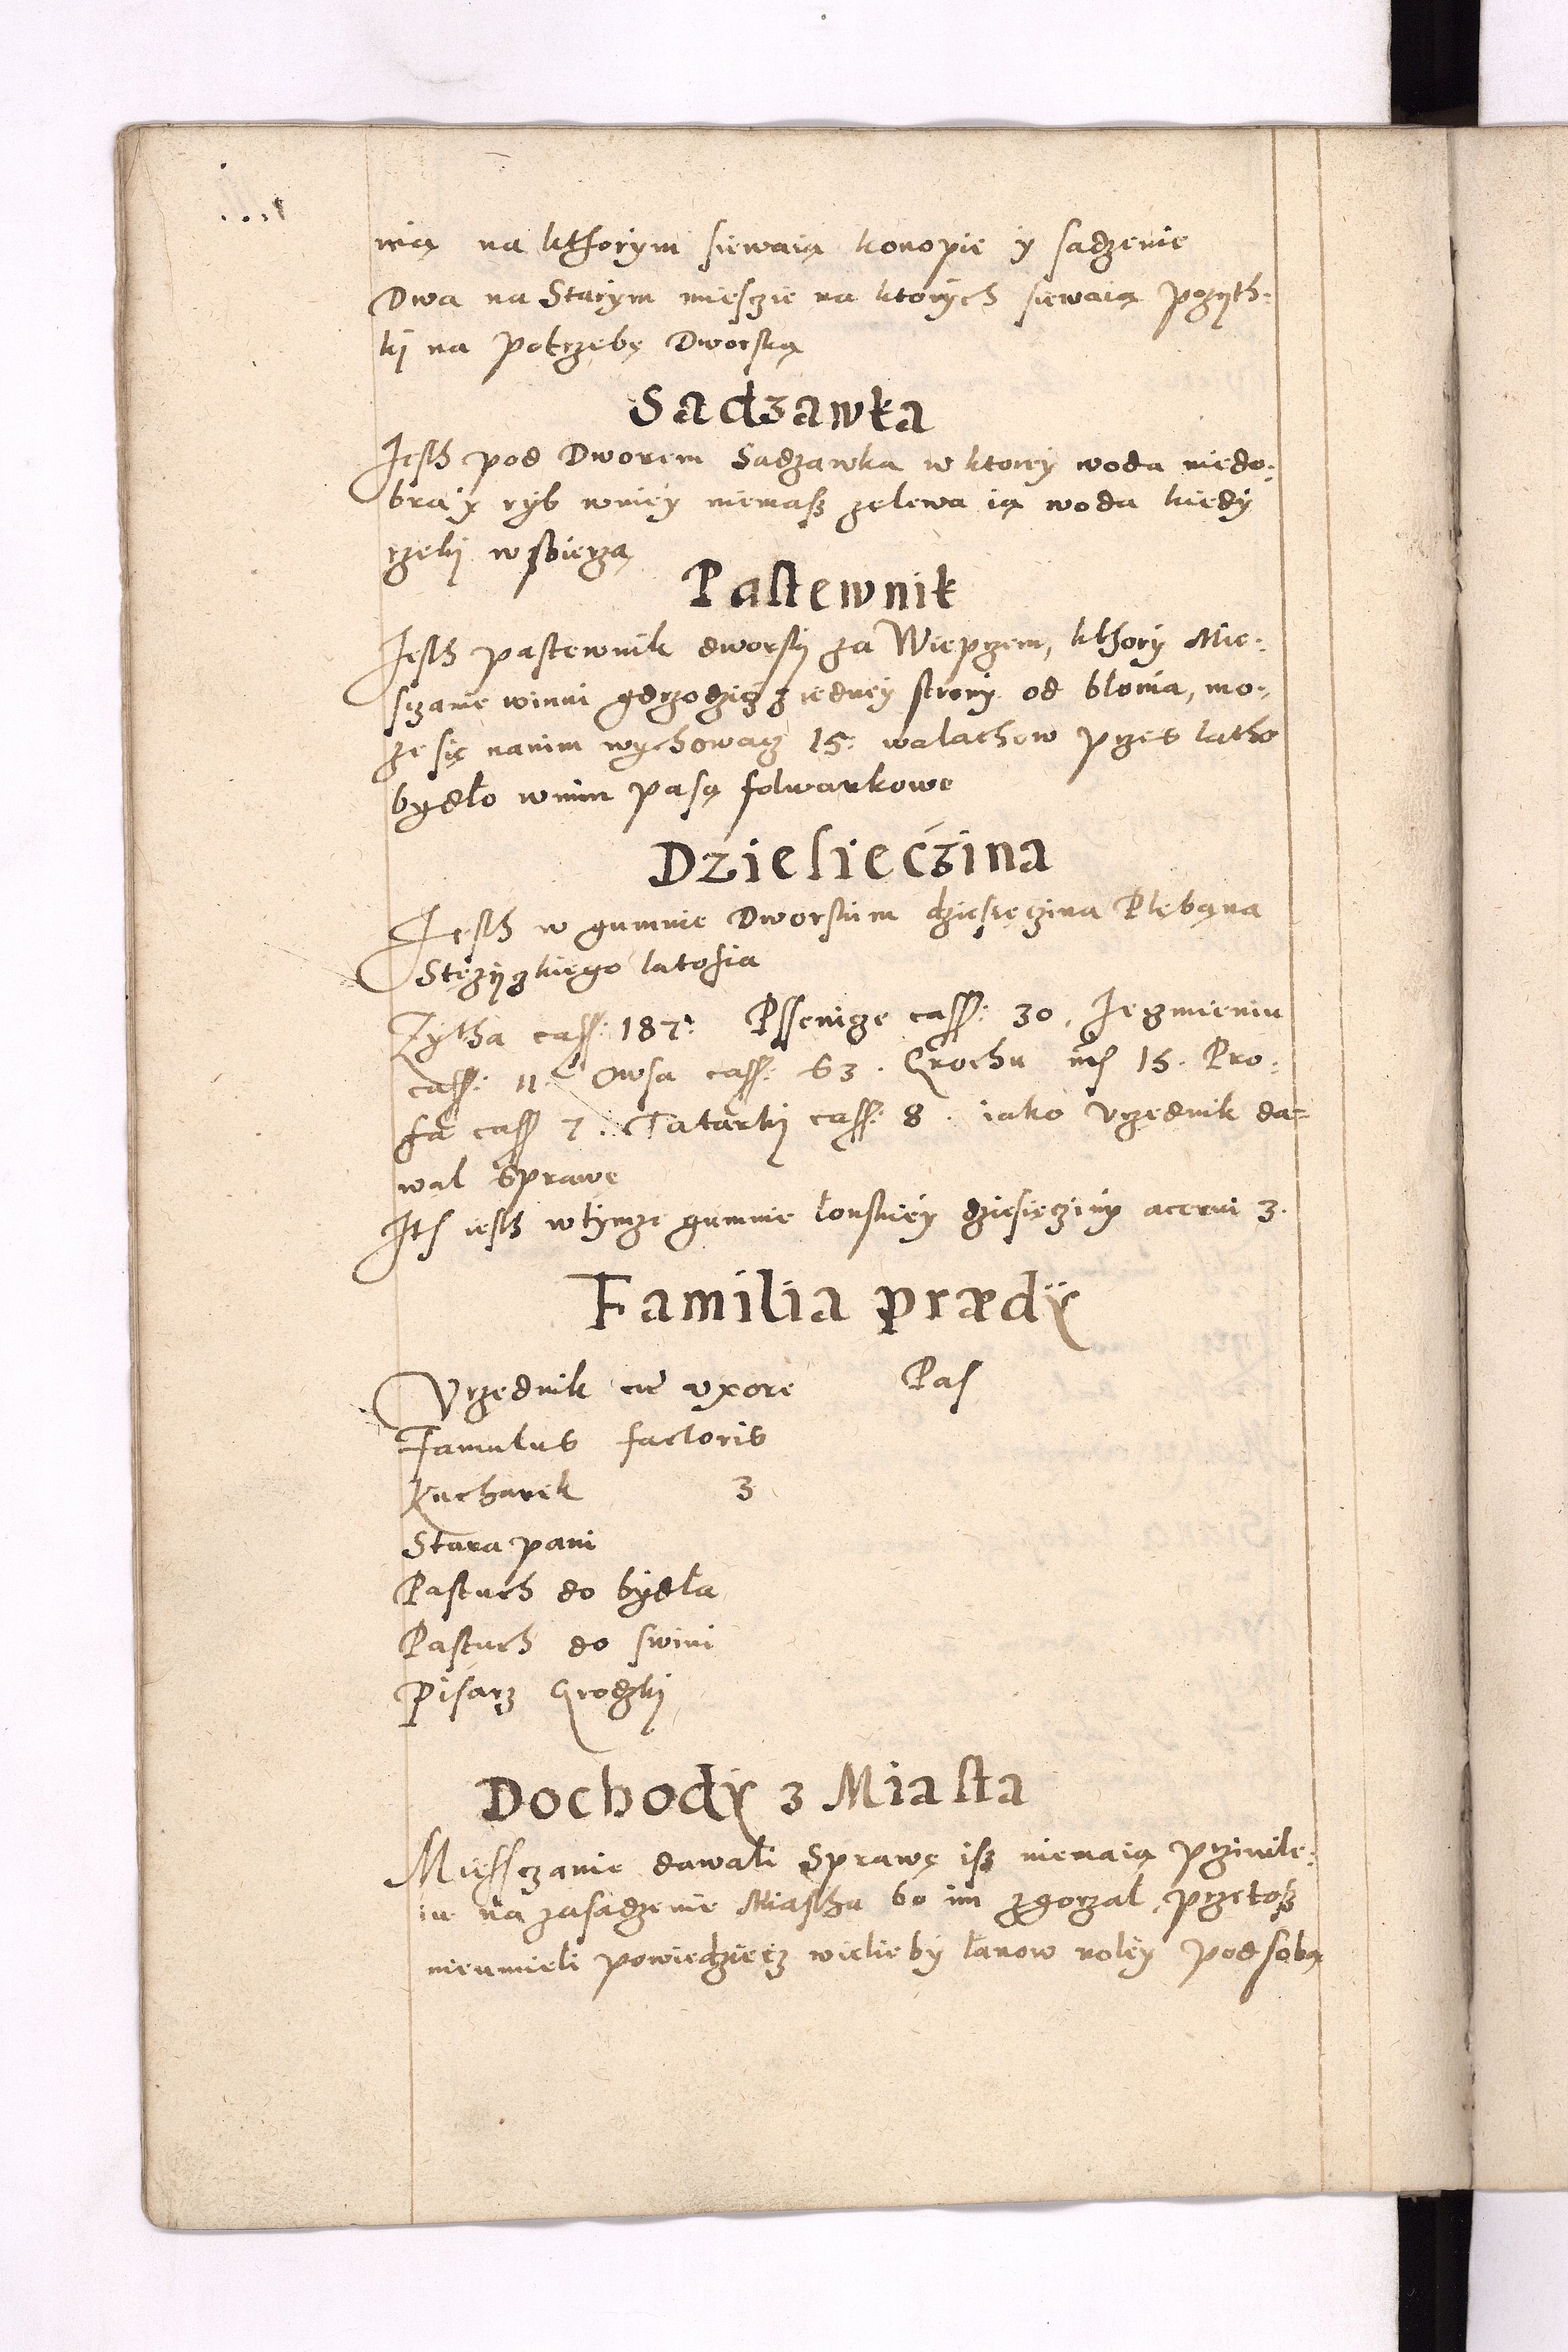 nią na kthorym siewaią konopie y sadzenie
Dwa na Starym miesczie na ktorych siewaią pozyth⸗
kj na potrzebę Dworską
Sadzawka
Jesth pod Dworem Sadzawka w ktorey woda niedo⸗
bra y ryb wniey niemasz zelewa ią woda kiedy
rzekj wsbierzą
Pastewnik
Jesth pastewnik dworskj za Wieprzem, kthory Mie⸗
sczanie winni gdrzodzicz z iedney strony od blonia, mo⸗
ze się nanim wychowacz 15: walachow przes latho
bydło wnim pasą folwarkowe
Dziesięczina
Jesth w gumnie Dworskim dziesięczina Plebana
Stęzyzkiego latosia
Zytha cass: 187: Pssenicze cass: 30, Jęgmieniu
cass: 11. Owsa cass: 63. Grochu 15. Pro⸗
sa cass 7. Tatarkj cass: 8. iako vrzednik da⸗
wal Sprawę
Jtẽ iesth wtymze gumnie łonskiey dziesięcziny acerui 3.
Familia prædÿ
Vrzednik cũ vxore Pas
Famulus factoris
Kucharek 3
Stara pani
Pastuch do bydła
Pastuch do swini
Pisarz Grodzkj
Dochodÿ z Miasta
Miessczanie dawali Sprawę isz niemaią prziuile⸗
iu na zasadzenie Miastha bo im zgorzal, przetosz
nieumieli powiedziecz wieleby łanow roley pod sobą